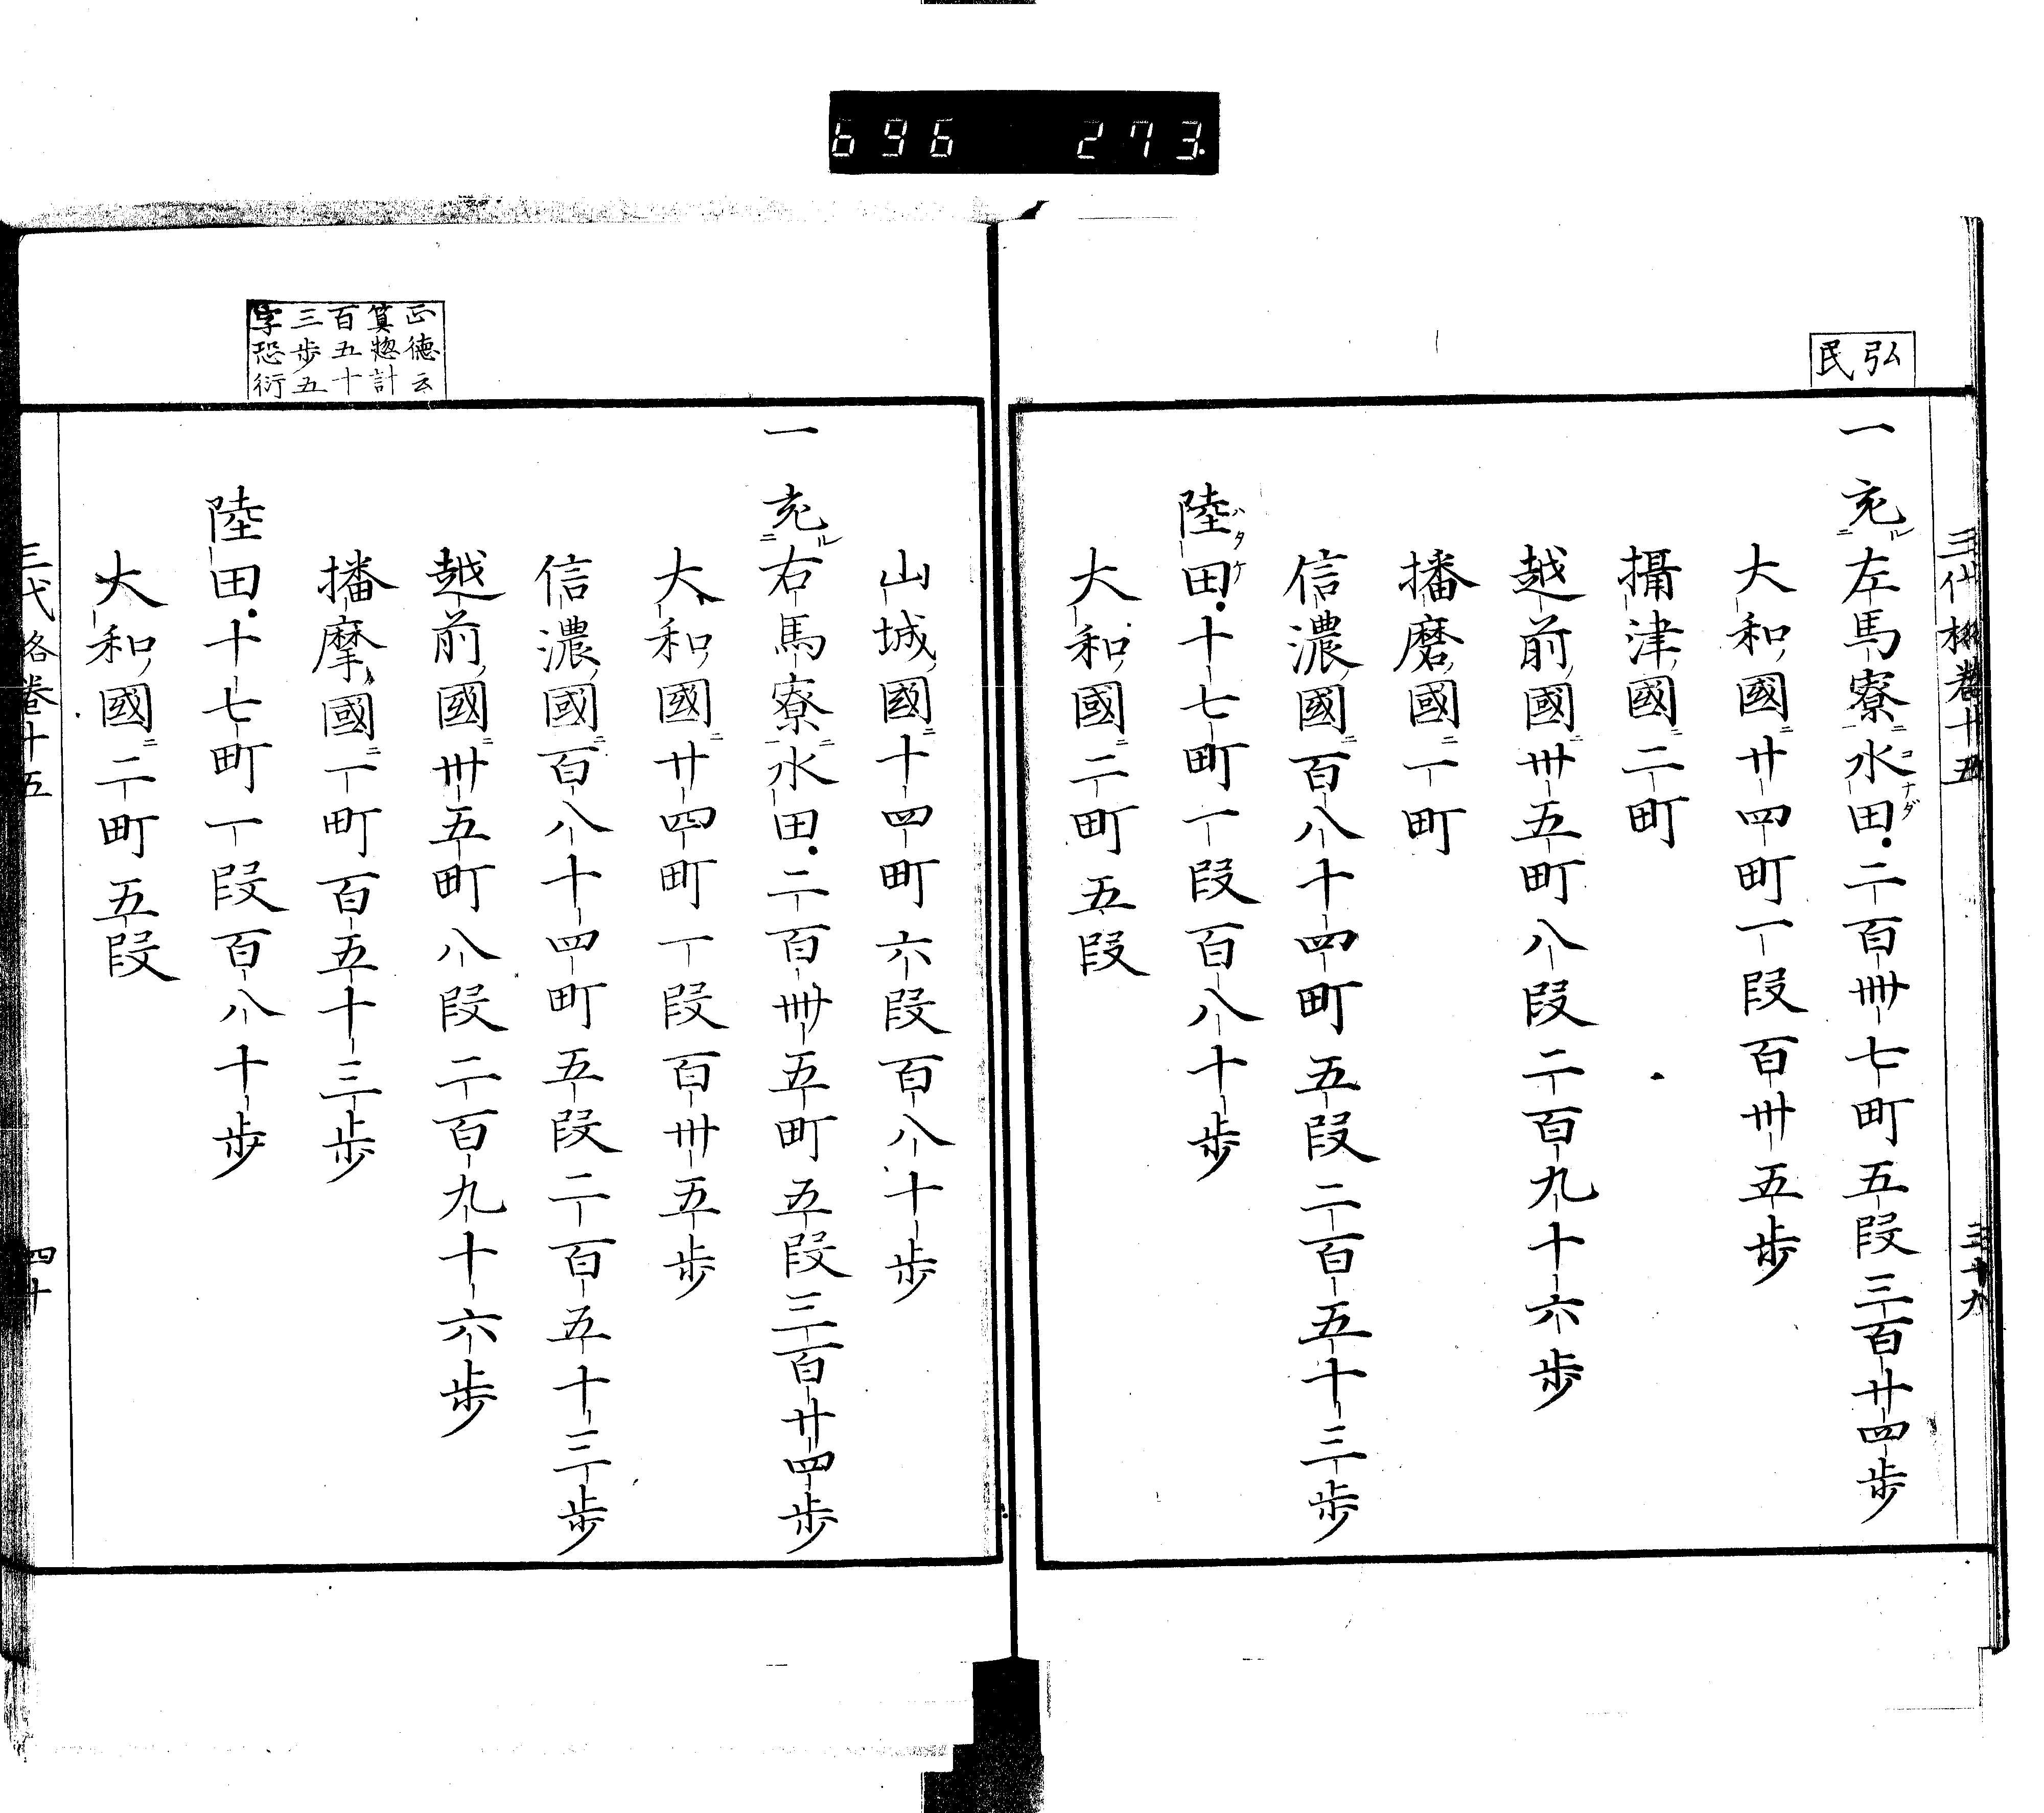 696 273
弘
民
三代格卷十五 三十九
一充ルニ左馬寮ニ水田コナダ二百卌七町五段三百廿四歩
大和國ニ廿四町一段百卅五歩
攝津國ニ二町
越前國ニ卅五町八段二百九十六歩
播磨國ニ一町
信濃國ニ百八十四町五段二百五十三歩
陸田ハタケ十七町一段百八十歩
大和國ニ二町五段
山城國ニ十四町六段百八十歩
一充ルニ右馬寮ニ水田二百卌五町五段三百廿四歩
大和國ニ廿四町一段百卅五歩
信濃國ニ百八十四町五段二百五十三歩
越前國ニ卅五町八段二百九十六歩
播摩國ニ一町百五十三歩
陸田十七町一段百八十歩
大和國ニ二町五段
正德云
算惣計
百五十
三歩五
字恐衍
三代格卷十五 四十